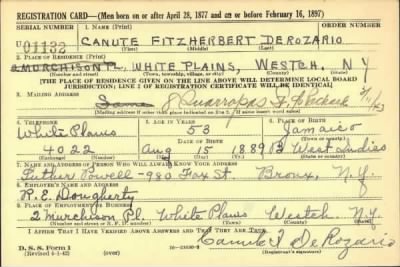 REGISTRATION CARD—(Men born on or after April 28, 1877 and on or before February 16, 1897)
SERIAL NUMBER 1. NAME (Print) ORDER NUMBER
U 01132 CANUTE FITZHERBERT DEROZARIO
(First) (Middle) (Last)
2. PLACE OF RESIDENCE (Print)
2 MURCHISON PL. WHITE PLAINS, WESTCH. N.Y
(Number and street) (Town, township, village, or city) (County) (State)
[THE PLACE OF RESIDENCE GIVEN ON THE LINE ABOVE WILL DETERMINE LOCAL BOARD
JURISDICTION; LINE 2 OF REGISTRATION CERTIFICATE WILL BE IDENTICAL]
3. MAILING ADDRESS
Same 8 Quarropas St.
[Mailing address if other than place indicated on line 2. If same insert word same]
4. TELEPHONE 5. AGE IN YEARS 6. PLACE OF BIRTH
White Plains 53 Jamaica
DATE OF BIRTH (Town or county)
4022 Aug 15 1889 West Indies
(Exchange) (Number) (Mo.) (Day) (Yr.) (State or country)
7. NAME AND ADDRESS OF PERSON WHO WILL ALWAYS KNOW YOUR ADDRESS
Luther Powell - 980 Fox St. Bronx, N.Y.
8. EMPLOYER'S NAME AND ADDRESS
R. E. Dougherty
9. PLACE OF EMPLOYMENT OR BUSINESS
2 Murchison Pl. White Plains Westch. N.Y.
(Number and street or R. F. D. number) (Town) (County) (State)
I AFFIRM THAT I HAVE VERIFIED ABOVE ANSWERS AND THAT THEY ARE TRUE.
D. S. S. Form 1
(Revised 4-1-42) (over) Canute F DeRozario
(Registrant's signature)